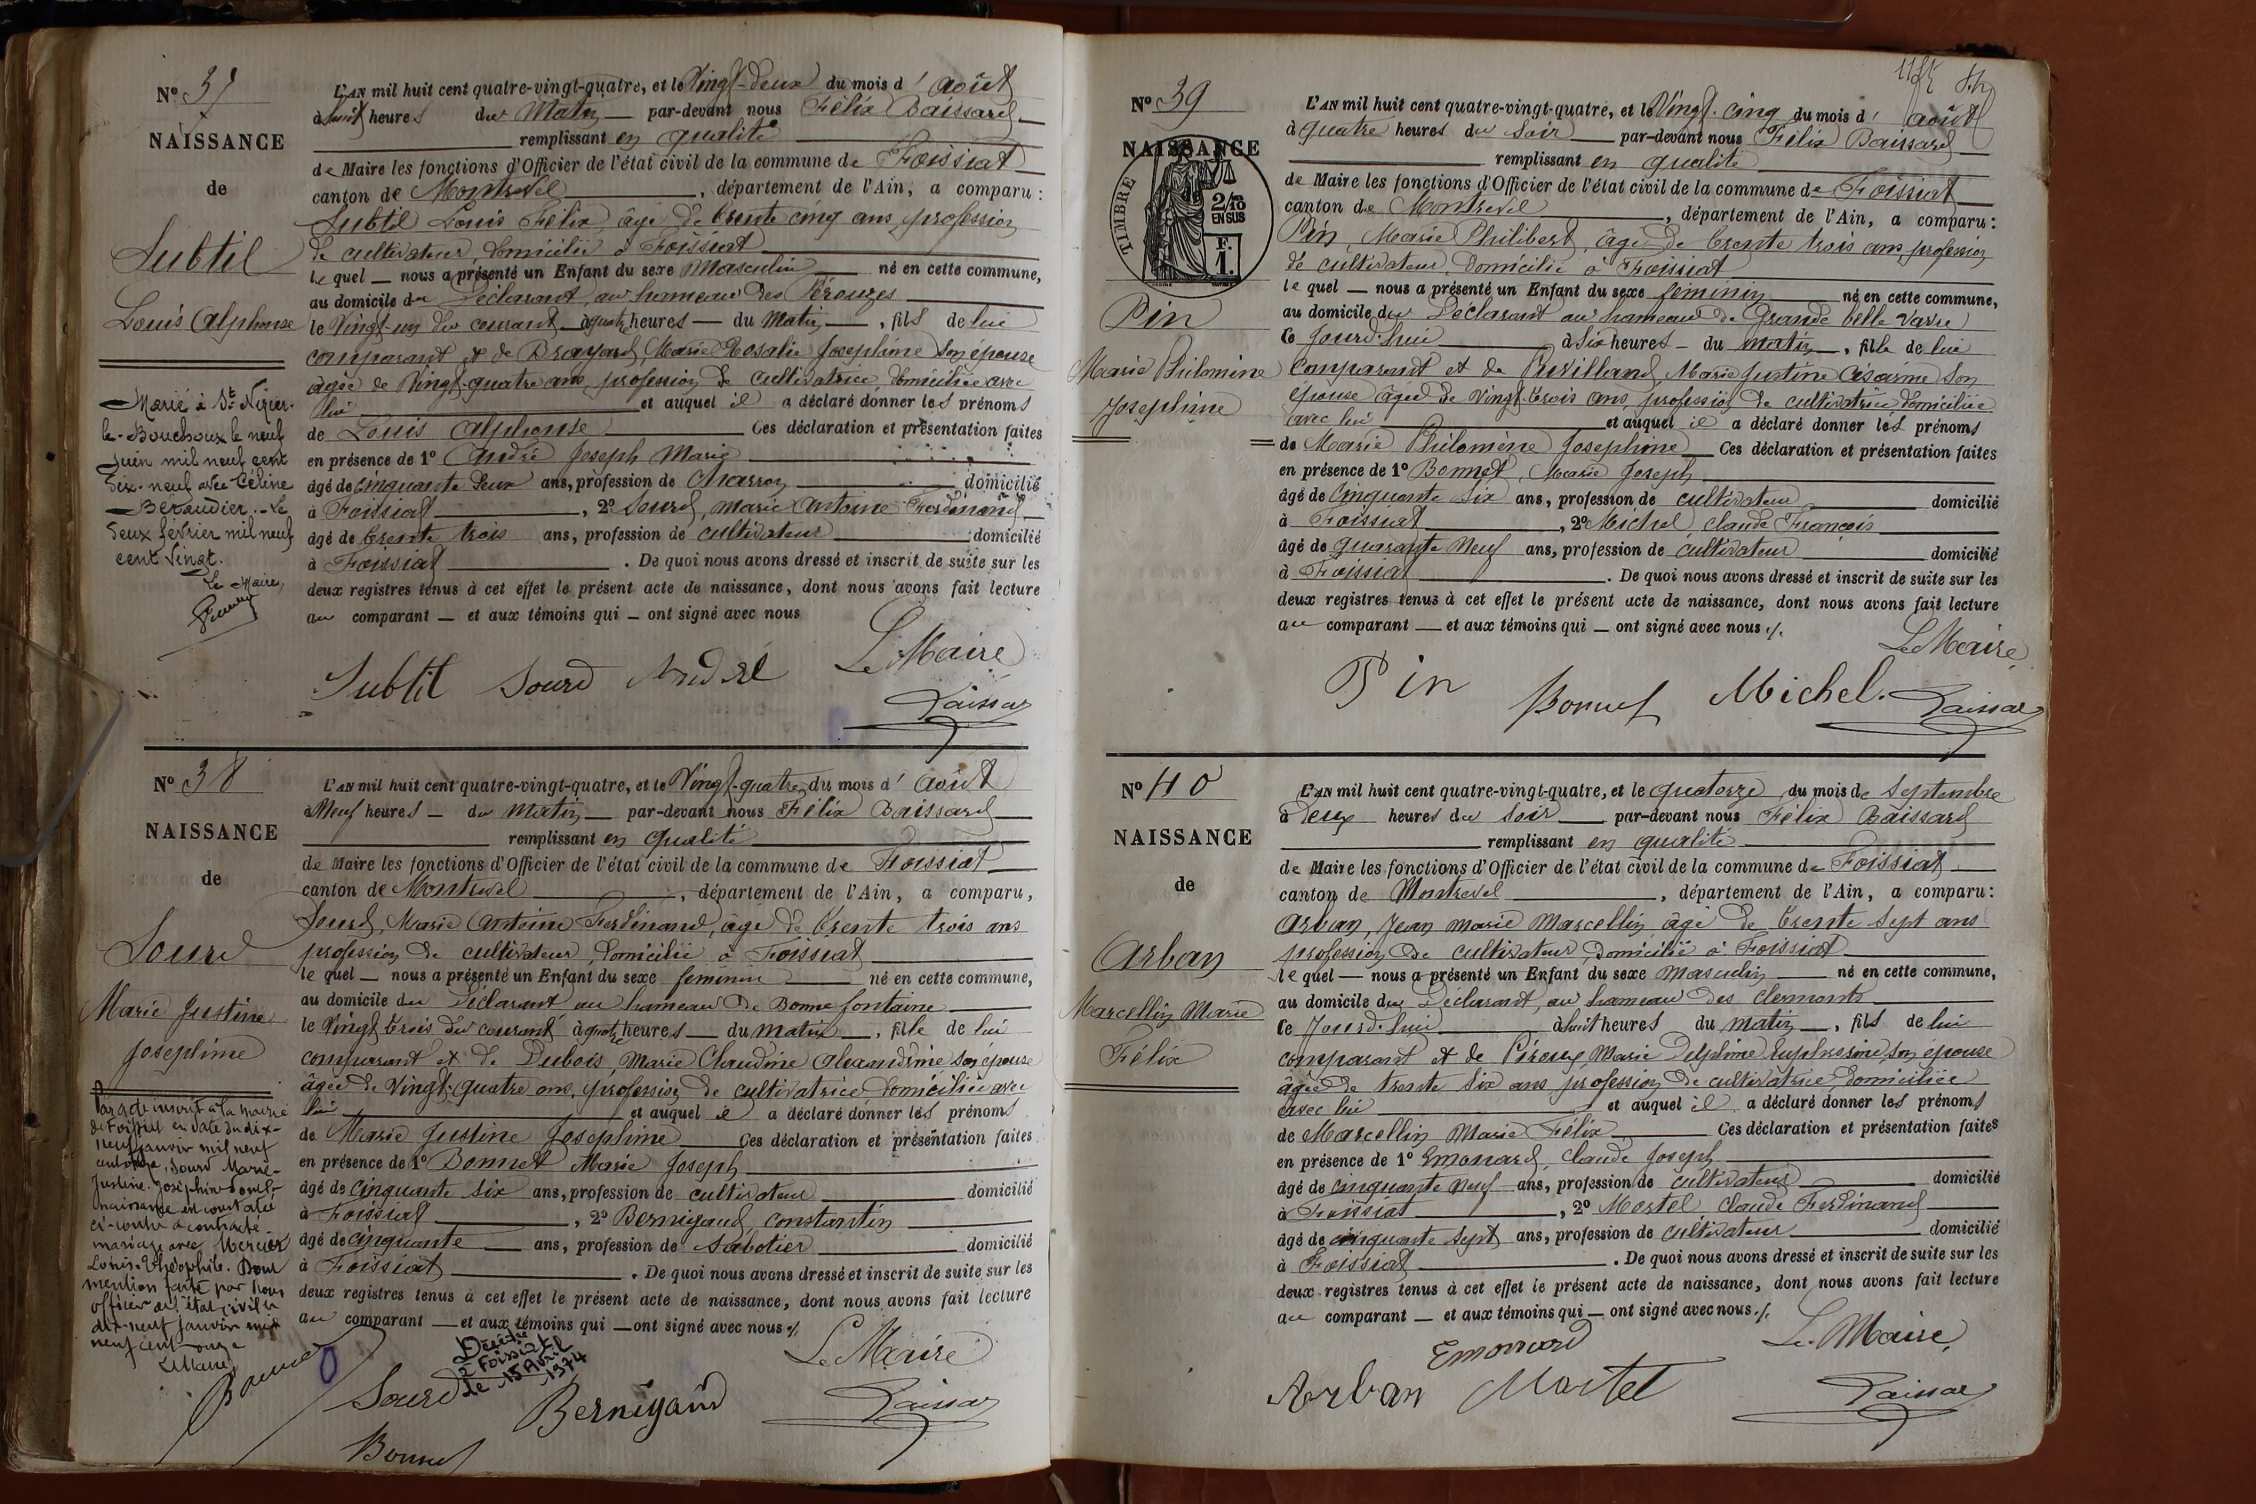 Nº 37
NAISSANCE
de
Subtil
Louis Alphonse
Marié à St Nizier-
le-Bouchoux le neuf
juin mil neuf cent
dix-neuf avec Céline
Béraudier. Le
deux février mil neuf
cent vingt.
Le Maire,
L'AN mil huit cent quatre-vingt-quatre, et le Vingt-deux du mois d'août
à huit heures du Matin par-devant nous Félix Baissard
remplissant en qualité
de Maire les fonctions d'Officier de l'état civil de la commune de Foissiat
canton de Montrevel, département de l'Ain, a comparu:
Subtil Louis Félix, âgé de trente cinq ans, profession
de cultivateur, domicilié à Foissiat
le quel nous a présenté un Enfant du sexe Masculin né en cette commune,
au domicile du Déclarant, au hameau des Pérouzes
le Vingt-un du courant à quatre heures du Matin, fils de lui
comparant et de Brayard Marie Rosalie Joséphine son épouse
agée de Vingt-quatre ans, profession de cultivatrice, domiciliée avec
lui et auquel il a déclaré donner les prénoms
de Louis Alphonse Ces déclaration et présentation faites
en présence de 1º André Joseph Marie
âgé de cinquante deux ans, profession de Charron domicilié
à Foissiat, 2º Sourd, Marie Antoine Ferdinand
âgé de trente trois ans, profession de cultivateur domicilié
à Foissiat. De quoi nous avons dressé et inscrit de suite sur les
deux registres tenus à cet effet le présent acte de naissance, dont nous avons fait lecture
au comparant et aux témoins qui ont signé avec nous
Le Maire
Subtil Sourd André
Baissard
Nº 38
NAISSANCE
de
Sourd
Marie Justine
Joséphine
Par acte inscrit à la mairie
de Foissiat en date du dix-
neuf janvier mil neuf
cent onze, Sourd Marie-
Justine-Joséphine dont la
naissance est constatée
ci-contre a contracté
mariage avec Mercier
Louis-Théophile. Dont
mention faite par nous
officier de l'état civil le
dix-neuf janvier mil
neuf cent onze
Le Maire
L'AN mil huit cent quatre-vingt-quatre, et le Vingt-quatre du mois d'août
à Neuf heures du Matin par-devant nous Félix Baissard
remplissant en qualité
de Maire les fonctions d'Officier de l'état civil de la commune de Foissiat
canton de Montrevel, département de l'Ain, a comparu,
Sourd, Marie Antoine Ferdinand, âgé de trente trois ans
profession de cultivateur, domicilié à Foissiat
le quel nous a présenté un Enfant du sexe féminin né en cette commune,
au domicile du Déclarant au hameau de Bonne fontaine
le Vingt trois du courant à quatre heures du matin, fille de lui
comparant et de Dubois, Marie Claudine Alexandrine son épouse
âgée de Vingt-quatre ans, profession de cultivatrice, domiciliée avec
lui et auquel il a déclaré donner les prénoms
de Marie Justine Joséphine Ces déclaration et présentation faites
en présence de 1º Bonnet Marie Joseph
âgé de cinquante six ans, profession de cultivateur domicilié
à Foissiat, 2º Bernigaud, constantin
âgé de cinquante ans, profession de sabotier domicilié
à Foissiat. De quoi nous avons dressé et inscrit de suite sur les
deux registres tenus à cet effet le présent acte de naissance, dont nous avons fait lecture
au comparant et aux témoins qui ont signé avec nous
Décédée
à Foissiat
le 15 Avril
1974
Le Maire
Sourd Bernigaud Baissard
Bonnet
Nº 39
NAISSANCE
TIMBRE
2/10
EN SUS
F.
1.
Pin
Marie Philomine
Joséphine
L'AN mil huit cent quatre-vingt-quatre, et le Vingt-cinq du mois d'août
à quatre heures du soir par-devant nous Félix Baissard
remplissant en qualité
de Maire les fonctions d'Officier de l'état civil de la commune de Foissiat
canton de Montrevel, département de l'Ain, a comparu:
Pin, Marie Philibert, âgé de trente trois ans, profession
de cultivateur, domicilié à Foissiat
le quel nous a présenté un Enfant du sexe féminin né en cette commune,
au domicile du Déclarant au hameau de Grande belle Vavre
Ce Jourd'hui à six heures du matin, fille de lui
comparant et de Puvilland, Marie Justine Césarine son
épouse âgée de Vingt trois ans profession de cultivatrice domiciliée
avec lui et auquel il a déclaré donner les prénoms
de Marie Philomène Joséphine Ces déclaration et présentation faites
en présence de 1º Bonnet, Marie Joseph
âgé de Cinquante six ans, profession de cultivateur domicilié
à Foissiat, 2º Michel Claude François
âgé de quarante Neuf ans, profession de cultivateur domicilié
à Foissiat. De quoi nous avons dressé et inscrit de suite sur les
deux registres tenus à cet effet le présent acte de naissance, dont nous avons fait lecture
au comparant et aux témoins qui ont signé avec nous
Le Maire
Pin Bonnet Michel. Baissard
Nº 40
NAISSANCE
de
Arban
Marcellin Marie
Félix
L'AN mil huit cent quatre-vingt-quatre, et le quatorze du mois de Septembre
à Deux heures du Soir par-devant nous Félix Baissard
remplissant en qualité
de Maire les fonctions d'Officier de l'état civil de la commune de Foissiat
canton de Montrevel, département de l'Ain, a comparu:
Arban, Jean Marie Marcellin âgé de trente sept ans
profession de cultivateur, domicilié à Foissiat
le quel nous a présenté un Enfant du sexe Masculin né en cette commune,
au domicile du Déclarant, au hameau des Clermonts
Ce Jourd'hui à huit heures du matin, fils de lui
comparant et de Piroux Marie Delphine Euphrosine, son épouse
âgée de trente six ans profession de cultivatrice, domiciliée
avec lui et auquel il a déclaré donner les prénoms
de Marcellin Marie Félix Ces déclaration et présentation faites
en présence de 1º Emonard, Claude Joseph
âgé de cinquante neuf ans, profession de cultivateur domicilié
à Foissiat, 2º Mortel, Claude Ferdinand
âgé de cinquante sept ans, profession de cultivateur domicilié
à Foissiat. De quoi nous avons dressé et inscrit de suite sur les
deux registres tenus à cet effet le présent acte de naissance, dont nous avons fait lecture
au comparant et aux témoins qui ont signé avec nous
Le Maire,
Emonard
Arban Mortel Baissard